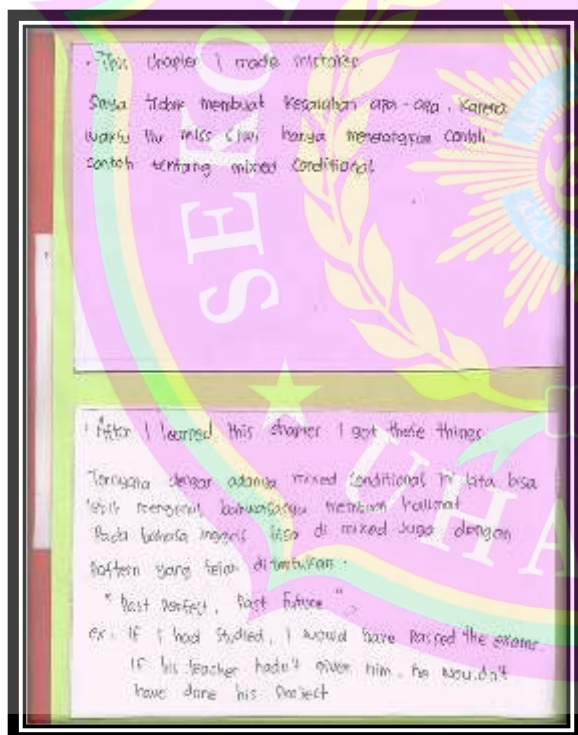 This chapter I made mistakes
Saya tidak membuat kesalahan apa-apa. Karena
waktu itu miss hanya menerangkan contoh-
contoh tentang mixed conditional.
SEKO
UHA
After I learned this chapter I got these things
Ternyata dengan adanya mixed conditional ini kita bisa
lebih mengerti, bahwasasnya membuat kalimat
Pada bahasa inggris bisa di mixed juga dengan
Pattern yang telah ditentukan.
"Past Perfect, Past Future".
ex: If I had studied, I would have passed the exams.
If his teacher hadn't given him, he wouldn't
have done his Project